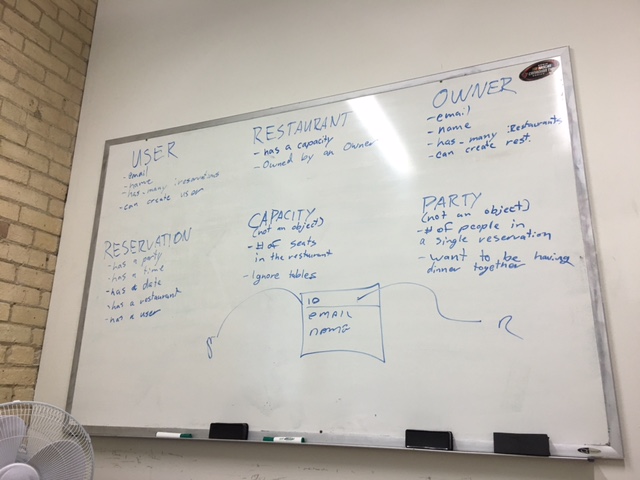 USER
- email
- name
- has-many reservations
- can create user
RESTAURANT
- has a capacity
- Owned by an Owner
OWNER
- email
- name
- has-many Restaurants
- can create rest.
RESERVATION
- has a party
- has a time
- has a date
- has a restaurant
- has a user
CAPACITY
(not an object)
- # of seats
in the restaurant
- Ignore tables
PARTY
(not an object)
- # of people in
a single reservation
- want to be having
dinner together
ID
EMAIL
NAME
R